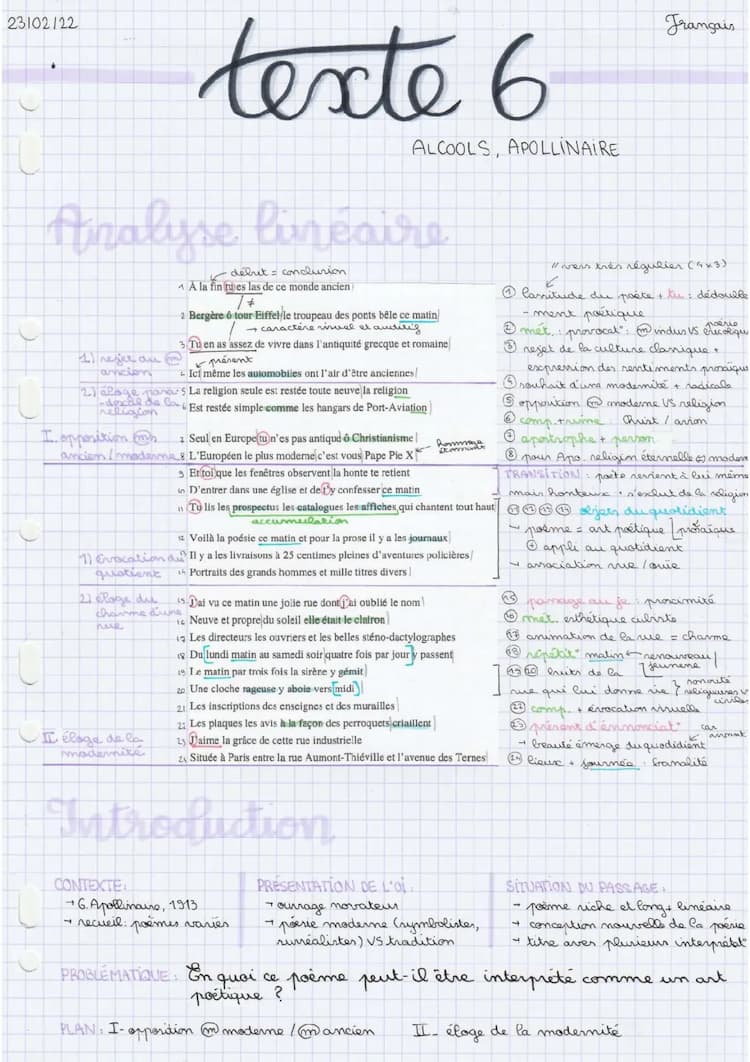 23/02/22
Français
texte 6
ALCOOLS, APOLLINAIRE
Analyse linéaire
début = conclusion
// vers très régulier (4x3)
1 À la fin tu es las de ce monde ancien
≠
2 Bergère ô tour Eiffel/le troupeau des ponts bêle ce matin/
→ caractère visuel et auditif
3 Tu en as assez de vivre dans l'antiquité grecque et romaine
↗ présent
4 Ici même les automobiles ont l'air d'être anciennes
5 La religion seule est restée toute neuve la religion
6 Est restée simple comme les hangars de Port-Aviation
7 Seul en Europe tu n'es pas antique ô Christianisme
8 L'Européen le plus moderne c'est vous Pape Pie X
9 Et toi que les fenêtres observent la honte te retient
10 D'entrer dans une église et de t'y confesser ce matin
11 Tu lis les prospectus les catalogues les affiches qui chantent tout haut
accumulation
12 Voilà la poésie ce matin et pour la prose il y a les journaux
13 Il y a les livraisons à 25 centimes pleines d'aventures policières
14 Portraits des grands hommes et mille titres divers
15 J'ai vu ce matin une jolie rue dont j'ai oublié le nom
16 Neuve et propre du soleil elle était le clairon
17 Les directeurs les ouvriers et les belles sténo-dactylographes
18 Du lundi matin au samedi soir quatre fois par jour y passent
19 Le matin par trois fois la sirène y gémit
20 Une cloche rageuse y aboie vers midi
21 Les inscriptions des enseignes et des murailles
22 Les plaques les avis à la façon des perroquets criaillent
23 J'aime la grâce de cette rue industrielle
24 Située à Paris entre la rue Aumont-Thiéville et l'avenue des Ternes
1) rejet du m
ancien
2) éloge
de la
religion
I. opposition m
ancien / moderne
1) Evocation du
quotient
2) éloge du
charme d'une
rue
II éloge de la
modernité
① lassitude du poète + tu : dédouble
- ment poétique
② met. : provocat° : m indus VS poésie bucolique
③ rejet de la culture classique +
expression des sentiments prosaïques
④ souhait d'une modernité + radicale
⑤ opposition m moderne VS religion
⑥ comp. + rime : Christ / avion
⑦ apostrophe + person.
hommage
⑧ pour Apo. religion éternelle moderne
TRANSITION : poète revient à lui même
mais honteux : s'exclut de la religion
⑪ ⑫ ⑬ ⑭ objets du quotidient
→ poème = art poétique [prosaïque
+ appli au quotidient
→ association vue / ouïe
⑮ passage au je : proximité
⑯ met. esthétique cubiste
⑰ animation de la rue = charme
⑱ répétit° matin renouveau / jeunesse
⑲ ⑳ bruits de la
rue qui lui donne vie ? sonorité religieuses VS civiles
㉒ comp. + évocation visuelle
㉓ présent d'énnonciat° car
→ beauté émerge du quodidient
㉔ lieux + journée : banalité
Introduction
CONTEXTE :
→ G. Apollinaire, 1913
→ recueil : poèmes variés
PRÉSENTATION DE L'OI :
→ ouvrage novateur
→ poésie moderne (symbolistes,
surréalistes) VS tradition
SITUATION DU PASSAGE :
→ poème riche et long + linéaire
→ conception nouvelle de la poésie
→ titre avec plusieurs interprétat°
PROBLÉMATIQUE : En quoi ce poème peut-il être interprété comme un art
poétique ?
PLAN : I- opposition m moderne / m ancien II- éloge de la modernité